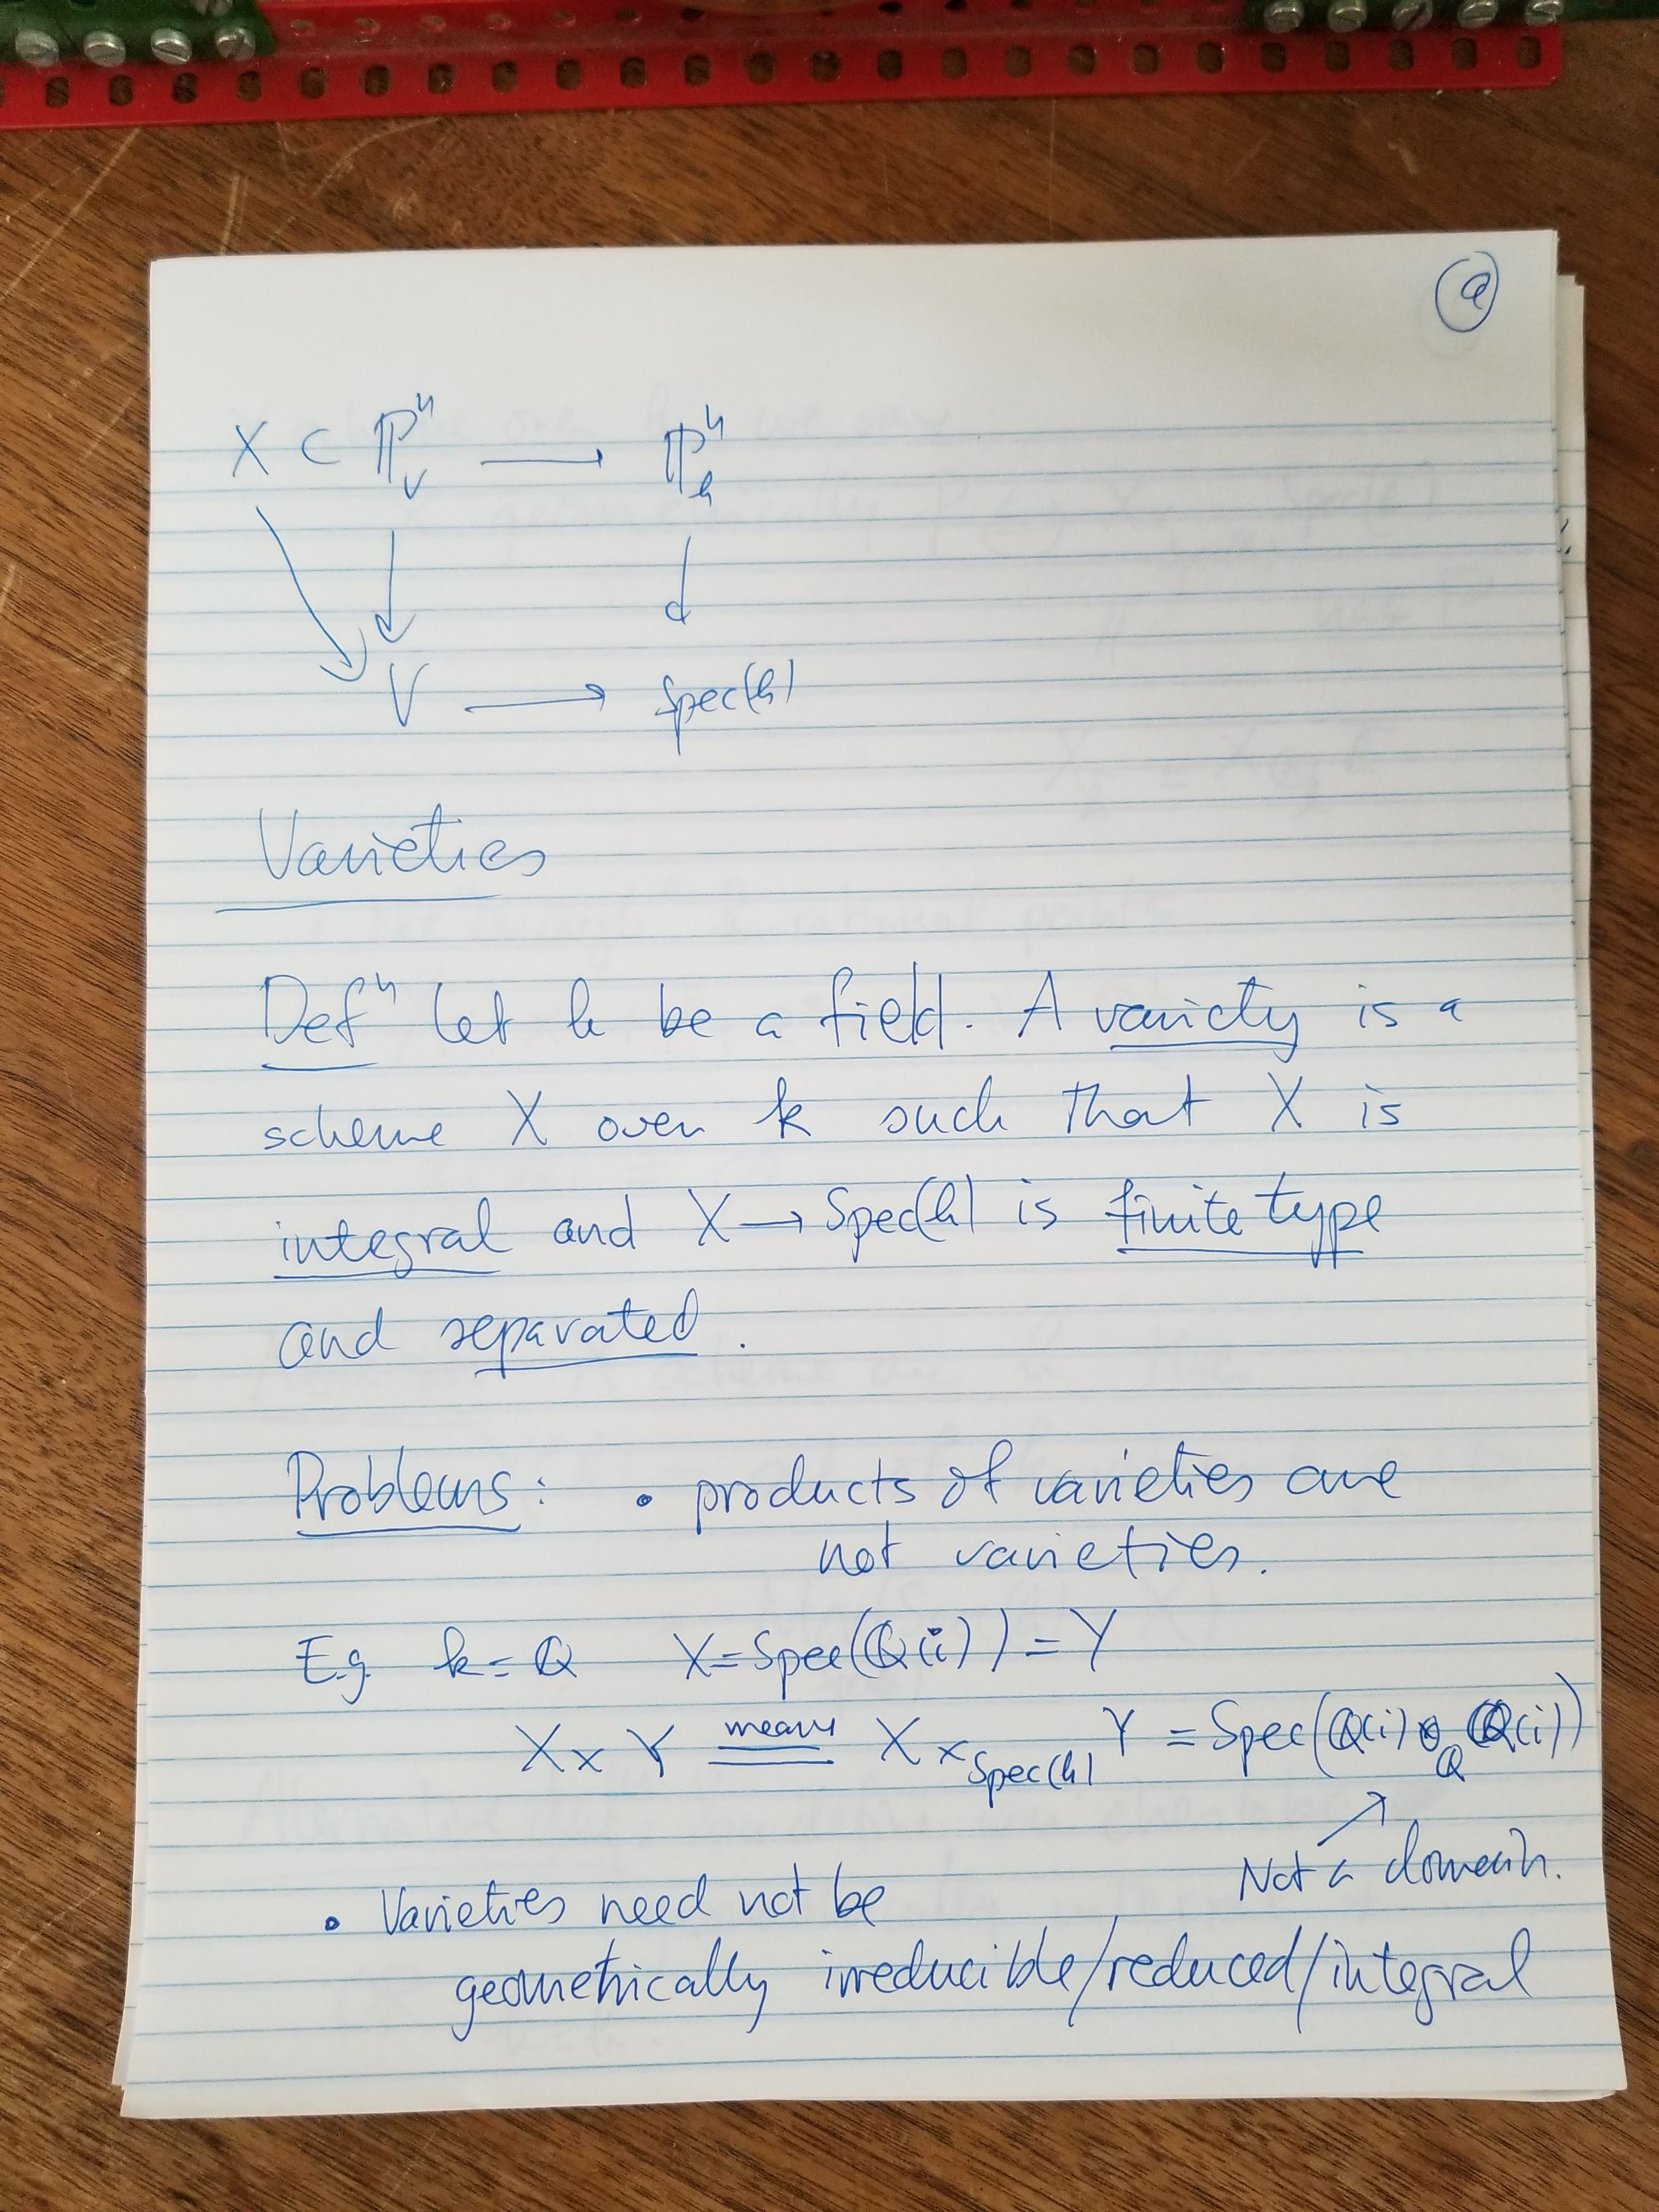 a
X ⊂ ℙⁿ_V → ℙⁿ_k
V → Spec(k)
Varieties
Defⁿ Let k be a field. A variety is a
scheme X over k such that X is
integral and X → Spec(k) is finite type
and separated.
Problems: • products of varieties are
not varieties.
E.g. k = ℚ X = Spec(ℚ(i)) = Y
X × Y means X ×_Spec(k) Y = Spec(ℚ(i) ⊗_ℚ ℚ(i))
Not a domain.
• Varieties need not be
geometrically irreducible/reduced/integral